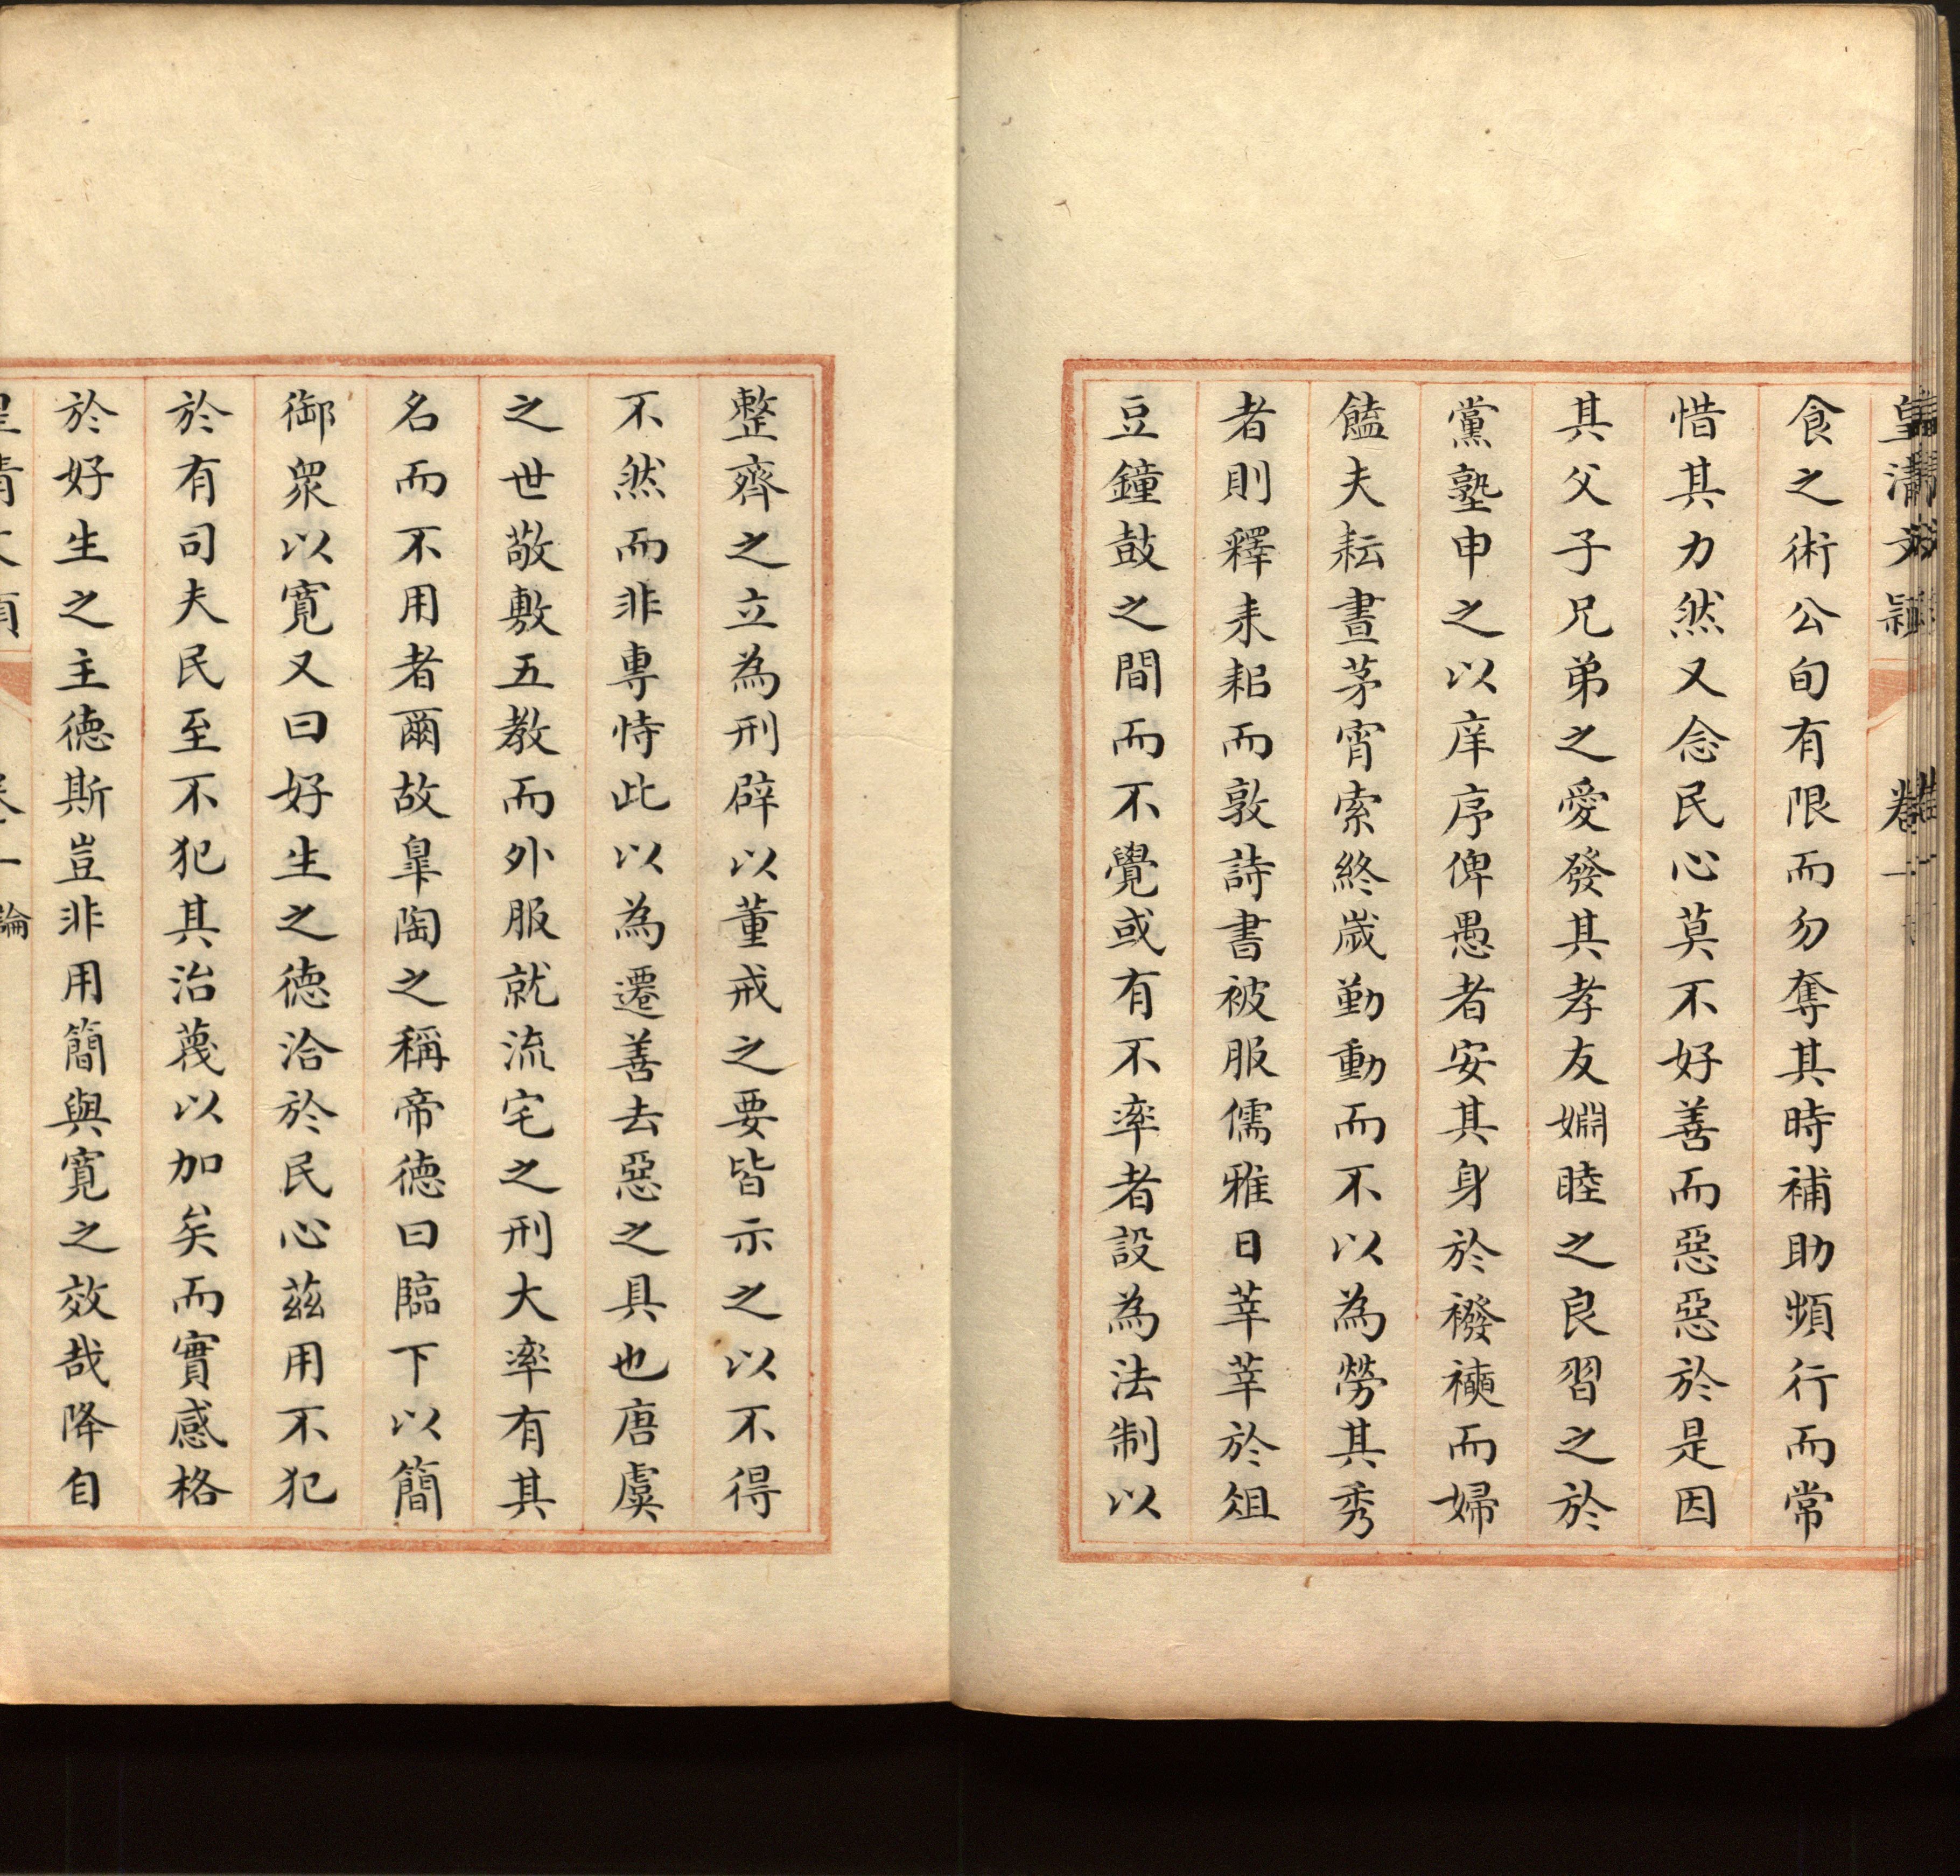 皇清文穎 卷一
食之術公旬有限而勿奪其時補助頻行而常
惜其力然又念民心莫不好善而惡惡於是因
其父子兄弟之愛發其孝友婣睦之良習之於
黨塾申之以庠序俾愚者安其身於襏襫而婦
饁夫耘晝茅宵索終歲勤動而不以為勞其秀
者則釋耒耜而敦詩書被服儒雅日莘莘於俎
豆鐘鼓之間而不覺或有不率者設為法制以
整齊之立為刑辟以董戒之要皆示之以不得
不然而非專恃此以為遷善去惡之具也唐虞
之世敬敷五教而外服就流宅之刑大率有其
名而不用者爾故臯陶之稱帝德曰臨下以簡
御衆以寬又曰好生之德洽於民心茲用不犯
於有司夫民至不犯其治蔑以加矣而實感格
於好生之主德斯豈非用簡與寬之效哉降自